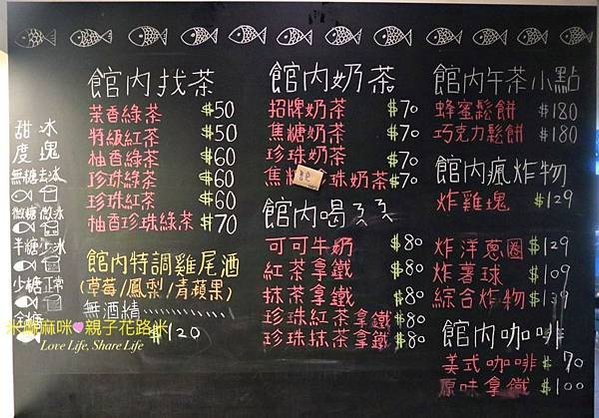 甜度 冰塊
無糖 去冰
微糖 微冰
半糖 少冰
少糖 正常
全糖
館內找茶
茉香綠茶 $50
特級紅茶 $50
柚香綠茶 $60
珍珠綠茶 $60
珍珠紅茶 $60
柚香珍珠綠茶 $70
館內特調雞尾酒
(草莓/鳳梨/青蘋果)
無酒精
$120
館內奶茶
招牌奶茶 $70
焦糖奶茶 $70
珍珠奶茶 $70
焦糖珠奶茶 $70
館內喝ㄋㄋ
可可牛奶 $80
紅茶拿鐵 $80
抹茶拿鐵 $80
珍珠紅茶拿鐵 $80
珍珠抹茶拿鐵 $80
館內午茶小點
蜂蜜鬆餅 $180
巧克力鬆餅 $180
館內瘋炸物
炸雞塊 $129
炸洋蔥圈 $129
炸薯球 $109
綜合炸物 $139
館內咖啡
美式咖啡 $70
原味拿鐵 $100
麻咪♥親子花路米
Love Life, Share Life